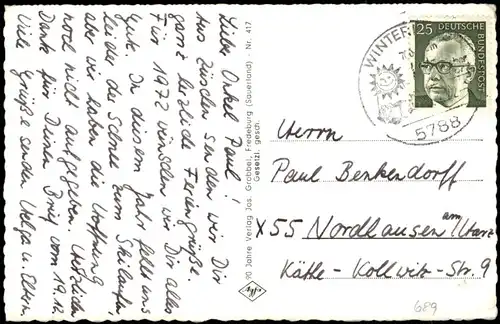 Lieber Onkel Paul!
Aus Züschen senden wir Dir
ganz herzliche Feriengrüße.
Für 1972 wünschen wir Dir alles
Gute. In diesem Jahr fehlt uns
leider der Schnee zum Skilaufen,
aber wir haben die Hoffnung
noch nicht aufgegeben. Herzlichen
Dank für Deinen Brief vom 19.12.
Viele Grüße senden Helga u. Eltern.
90 Jahre Verlag Jos. Grobbel, Fredeburg (Sauerland) · Nr. 417
Gesetzl. gesch.
WINTER
5788
25 DEUTSCHE BUNDESPOST
Herrn
Paul Benkendorff
X55 Nordhausen am Harz
Käthe-Kollwitz-Str. 9
689